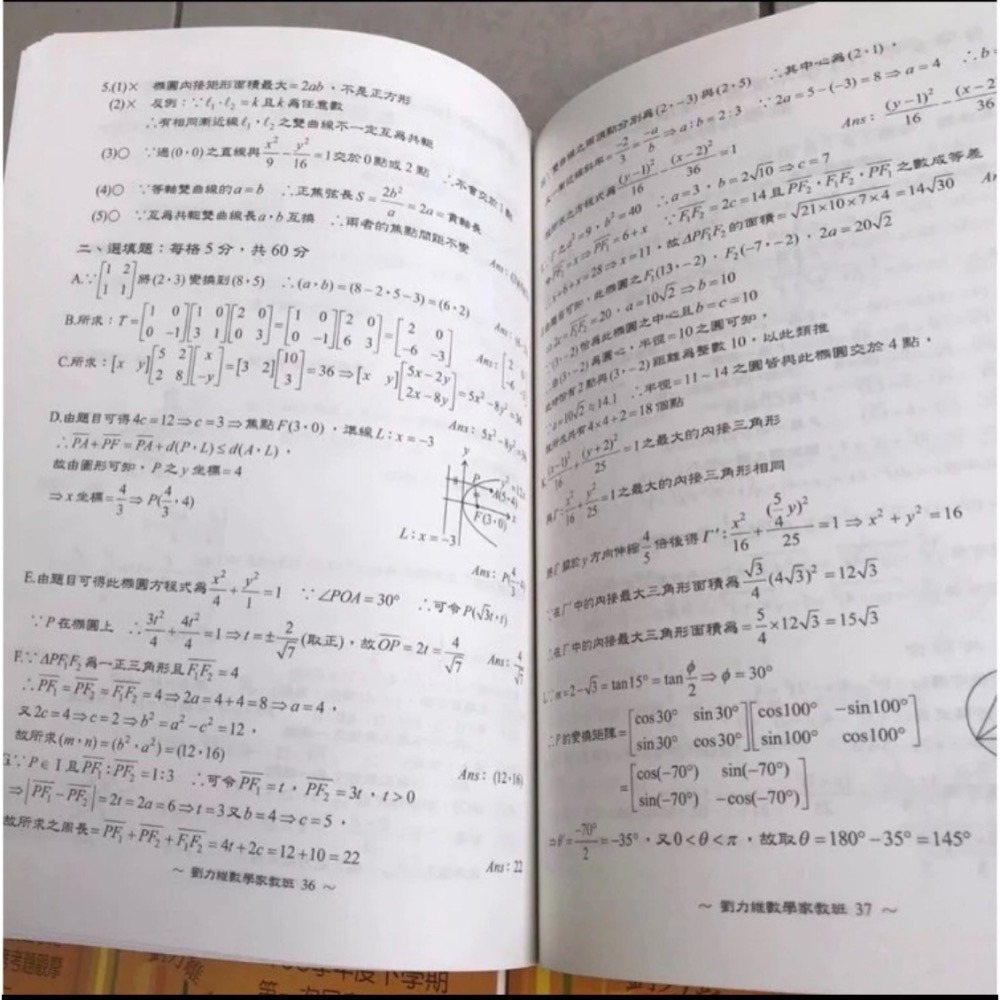 5.(1)× 橢圓內接矩形面積最大=2ab,不是正方形
(2)× 反例:∵ℓ₁·ℓ₂=k且k為任意數
∴有相同漸近線ℓ₁,ℓ₂之雙曲線不一定互為共軛
(3)○ ∵過(0,0)之直線與x²/9-y²/16=1交於0點或2點 ∴不會交於1點
(4)○ ∵等軸雙曲線的a=b ∴正焦弦長S=2b²/a=2a=貫軸長
(5)○ ∵互為共軛雙曲線長a,b互換 ∴兩者的焦點間距不變
二、選填題:每格5分,共60分
A.∵[1 2; 1 1]將(2,3)變換到(8,5) ∴(a,b)=(8-2,5-3)=(6,2)
B.所求:T=[1 0; 0 -1][1 0; 3 1][2 0; 0 3]=[1 0; 0 -1][2 0; 6 3]=[2 0; -6 -3]
C.所求:[x y][5 2; 2 8][x; -y]=[3 2][10; 3]=36⇒[x y][5x-2y; 2x-8y]=5x²-8y²=36
Ans:5x²-8y²=36
D.由題目可得4c=12⇒c=3⇒焦點F(3,0),準線L:x=-3
∴PA+PF=PA+d(P,L)≤d(A,L),
故由圖形可知,P之y坐標=4
⇒x坐標=4/3⇒P(4/3,4)
y
y²=12x
P
A(5,4)
F(3,0)
x
L:x=-3
Ans:P(4/3,4)
E.由題目可得此橢圓方程式為x²/4+y²/1=1 ∵∠POA=30° ∴可令P(√3t,t)
∵P在橢圓上 ∴3t²/4+4t²/4=1⇒t=±2/√7(取正),故OP=2t=4/√7 Ans:4/√7
F.∵ΔPF₁F₂為一正三角形且F₁F₂=4
∴PF₁=PF₂=F₁F₂=4⇒2a=4+4=8⇒a=4,
又2c=4⇒c=2⇒b²=a²-c²=12,
故所求(m,n)=(b²,a²)=(12,16) Ans:(12,16)
G.∵P∈Ⅰ且PF₁:PF₂=1:3 ∴可令PF₁=t,PF₂=3t,t>0
⇒|PF₁-PF₂|=2t=2a=6⇒t=3又b=4⇒c=5,
故所求之周長=PF₁+PF₂+F₁F₂=4t+2c=12+10=22 Ans:22
~ 劉力維數學家教班 36 ~
分別為(2,-3)與(2,5) ∴其中心為(2,1),
-2/3=-a/b⇒a:b=2:3 ∵2a=5-(-3)=8⇒a=4
方程式為(y-1)²/16-(x-2)²/36=1 Ans:(y-1)²/16-(x-2)²/36
a²=9,b²=40 ∴a=3,b=2√10⇒c=7
PF₂=x⇒PF₁=6+x ∵F₁F₂=2c=14且PF₂,F₁F₂,PF₁之數成等差
x+6+x=28⇒x=11,故ΔPF₁F₂的面積=√21×10×7×4=14√30
可知,此橢圓之F₁(13,-2),F₂(-7,-2),2a=20√2
F₁F₂=20,a=10√2⇒b=10
(3,-2)恰為此橢圓之中心且b=c=10
(3,-2)為圓心,半徑=10之圓可知,
恰有2點與(3,-2)距離為整數10,以此類推
a=10√2≒14.1 ∴半徑=11~14之圓皆與此橢圓交於4點,
共有4×4+2=18個點
K.(x-1)²/16+(y+2)²/25=1之最大的內接三角形
x²/16+y²/25=1之最大的內接三角形相同
將Γ關於y方向伸縮4/5倍後得Γ':x²/16+(5/4 y)²/25=1⇒x²+y²=16
∵在Γ'中的內接最大三角形面積為√3/4(4√3)²=12√3
∴在Γ中的內接最大三角形面積為=5/4×12√3=15√3
L.∵m=2-√3=tan15°=tanϕ/2⇒ϕ=30°
∴P的變換矩陣=[cos30° sin30°; sin30° cos30°][cos100° -sin100°; sin100° cos100°]
=[cos(-70°) sin(-70°); sin(-70°) -cos(-70°)]
⇒θ=-70°/2=-35°,又0<θ<π,故取θ=180°-35°=145°
~ 劉力維數學家教班 37 ~
學年度下學期